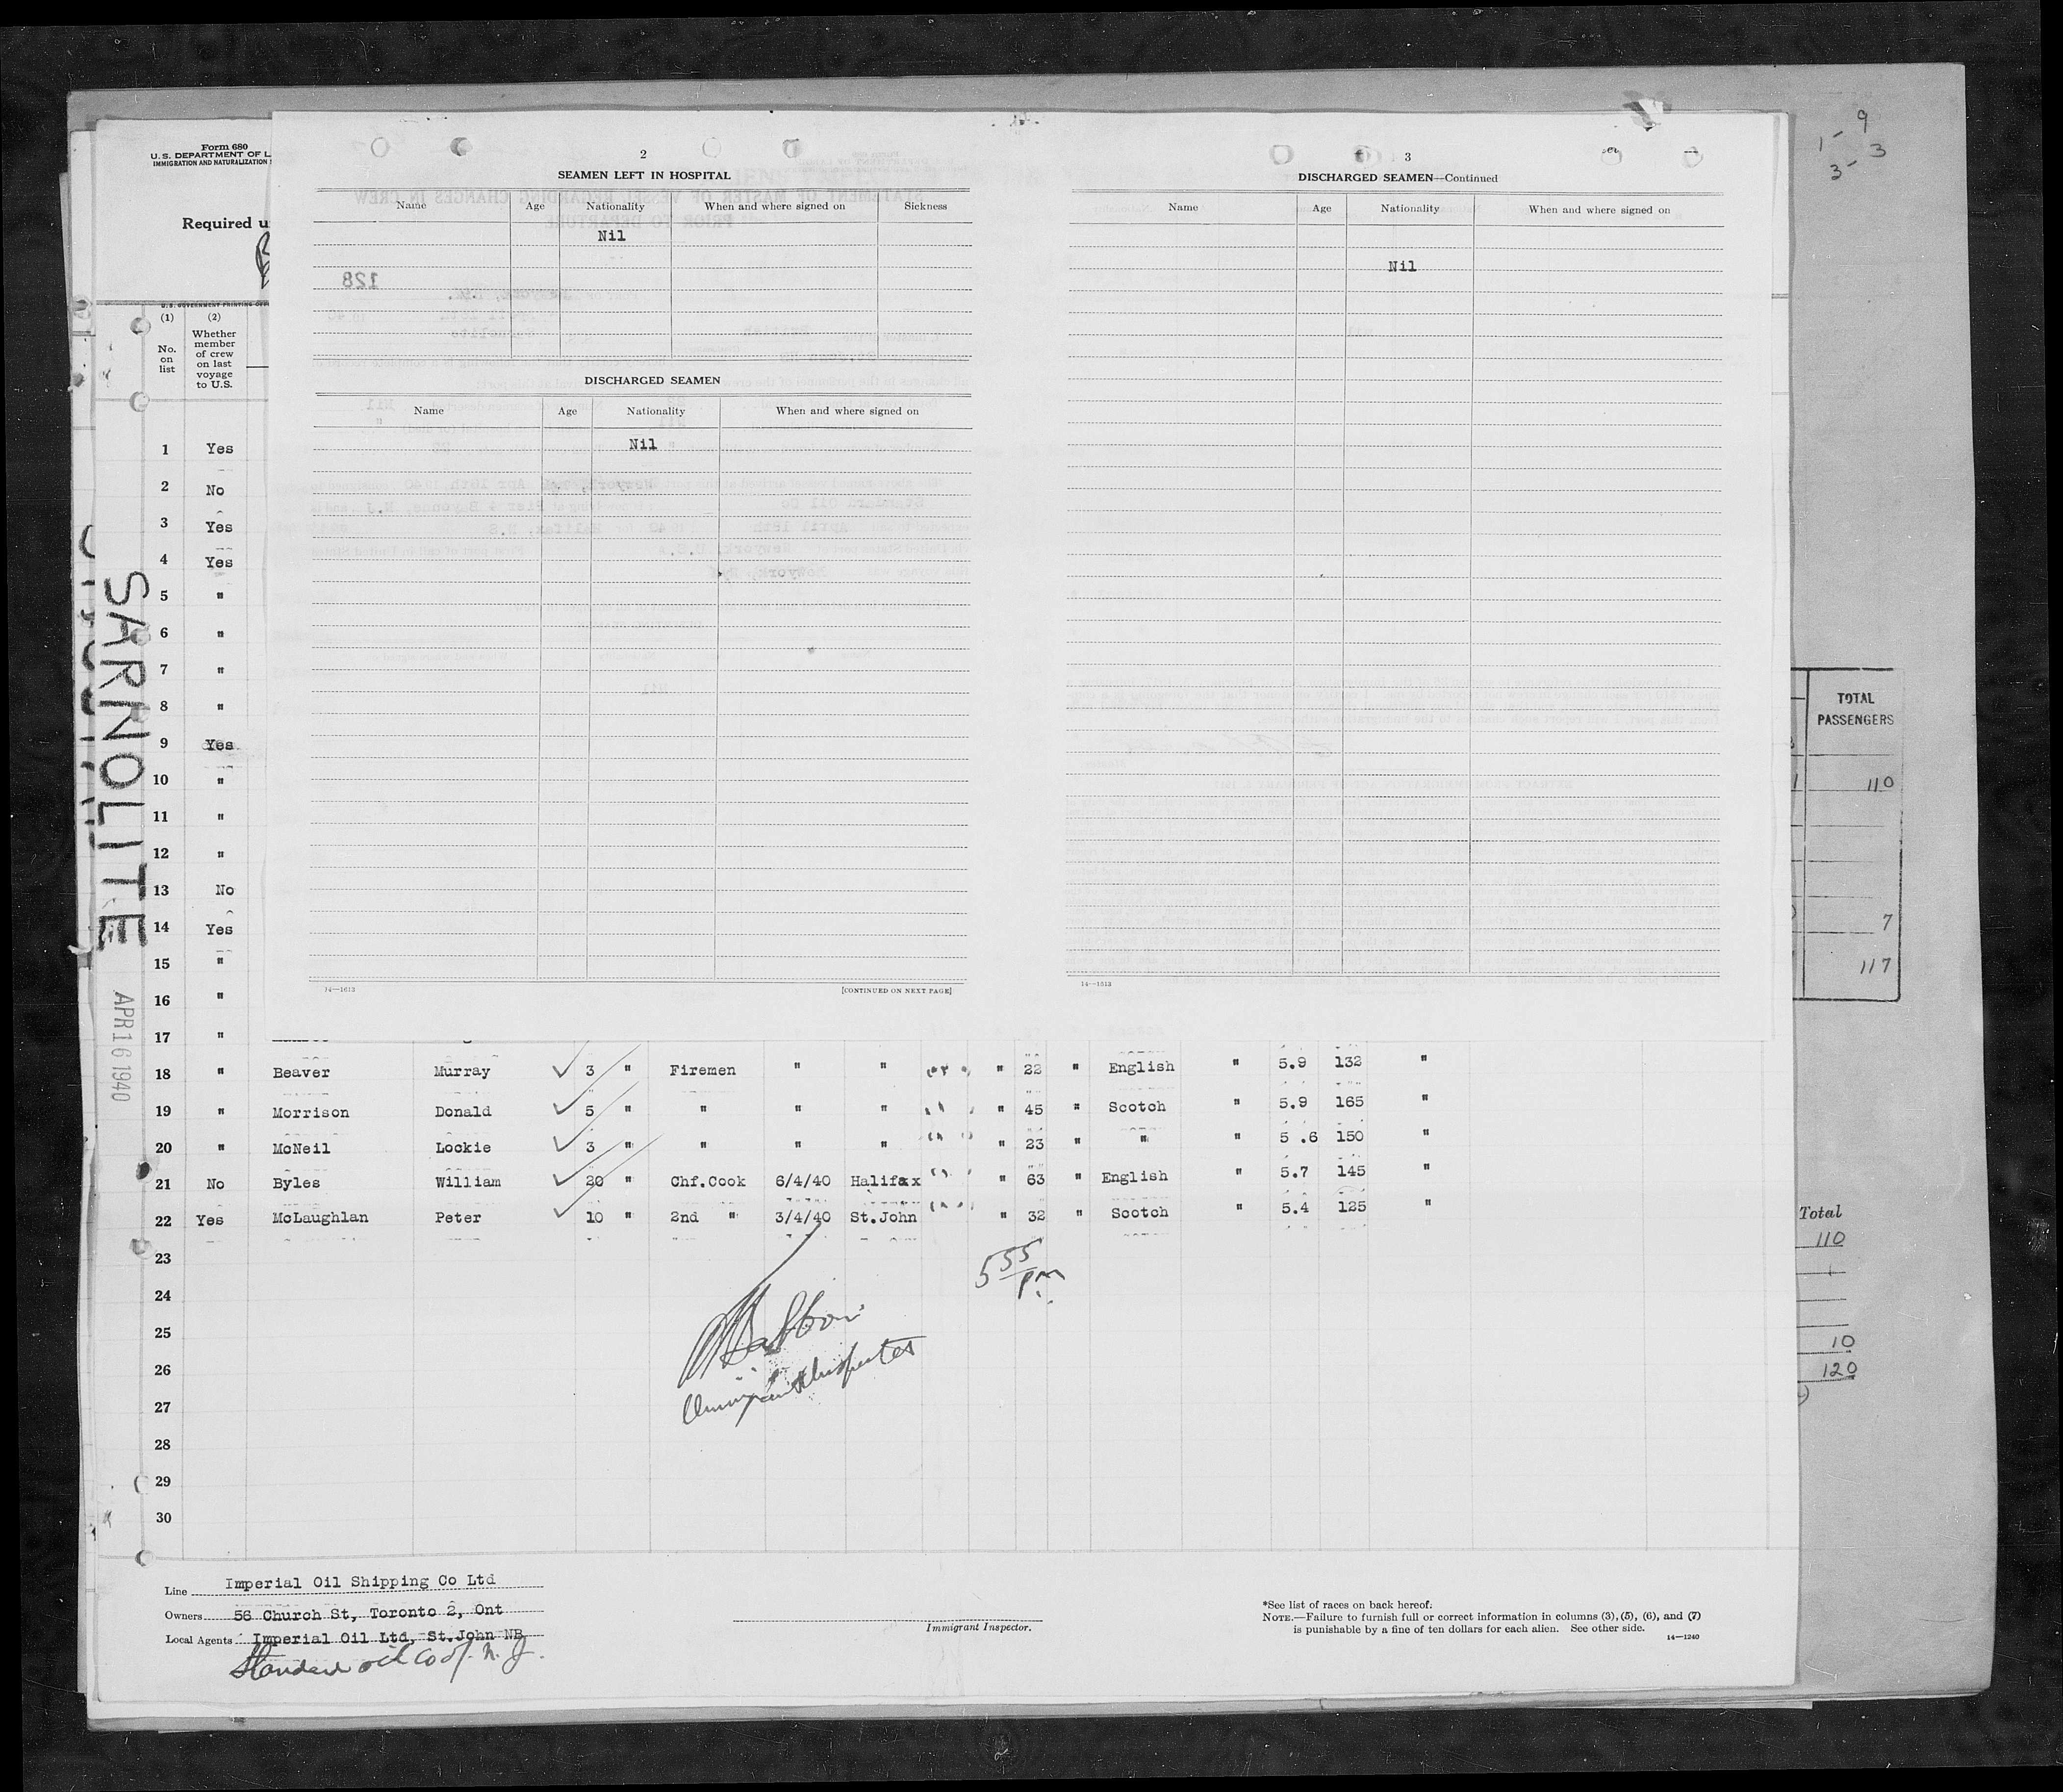 1 - 9
3 - 3
Form 680
U.S. DEPARTMENT OF L
IMMIGRATION AND NATURALIZATION
Required u
(1) (2)
No. on list
Whether member of crew on last voyage to U.S.
SARNOLITE
APR 16 1940
1 Yes
2 No
3 Yes
4 Yes
5 "
6 "
7 "
8 "
9 Yes
10 "
11 "
12 "
13 No
14 Yes
15 "
16 "
17 "
2
SEAMEN LEFT IN HOSPITAL
Name Age Nationality When and where signed on Sickness
Nil
128
DISCHARGED SEAMEN
Name Age Nationality When and where signed on
Nil
14—1613 [CONTINUED ON NEXT PAGE]
3
DISCHARGED SEAMEN—Continued
Name Age Nationality When and where signed on
Nil
14—1613
TOTAL
PASSENGERS
110
7
117
18 " Beaver Murray 3 " Firemen " " " 22 " English " 5.9 132 "
19 " Morrison Donald 5 " " " " " 45 " Scotch " 5.9 165 "
20 " McNeil Lockie 3 " " " " " 23 " " " 5.6 150 "
21 No Byles William 20 " Chf.Cook 6/4/40 Halifax " 63 " English " 5.7 145 "
22 Yes McLaughlan Peter 10 " 2nd " 3/4/40 St.John " 32 " Scotch " 5.4 125 "
23
24
25
26
27
28
29
30
5 55 pm
Total
110
10
120
Line Imperial Oil Shipping Co Ltd
Owners 56 Church St, Toronto 2, Ont
Local Agents Imperial Oil Ltd, St.John NB
Standard oil Co of N. J.
Immigrant Inspector.
*See list of races on back hereof.
NOTE.—Failure to furnish full or correct information in columns (3), (5), (6), and (7)
is punishable by a fine of ten dollars for each alien. See other side.
14—1240